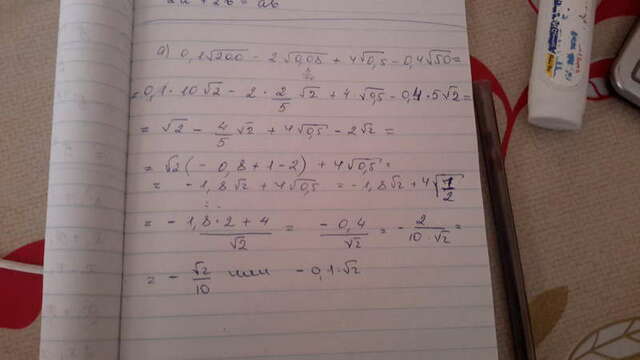 2a + 2b = ab
а) 0,1√200 - 2√0,08 + 4√0,5 - 0,4√50 =
= 0,1 · 10√2 - 2 · 2/5 √2 + 4 · √0,5 - 0,4 · 5√2 =
= √2 - 4/5 √2 + 4√0,5 - 2√2 =
= √2(- 0,8 + 1 - 2) + 4√0,5 =
= - 1,8√2 + 4√0,5 = - 1,8√2 + 4√1/2
= - 1,8 · 2 + 4 / √2 = - 0,4 / √2 = - 2 / 10 · √2 =
= - √2/10 или - 0,1 · √2